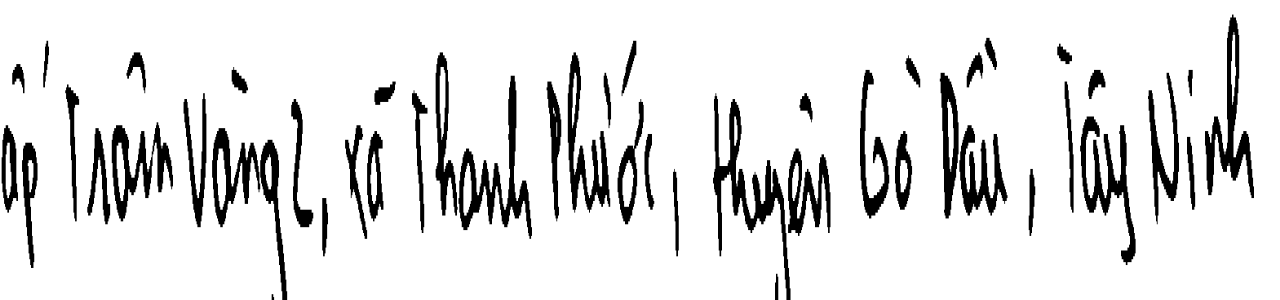 ấp Trâm Vàng 2, xã Thanh Phước, Huyện Gò Dầu, Tây Ninh